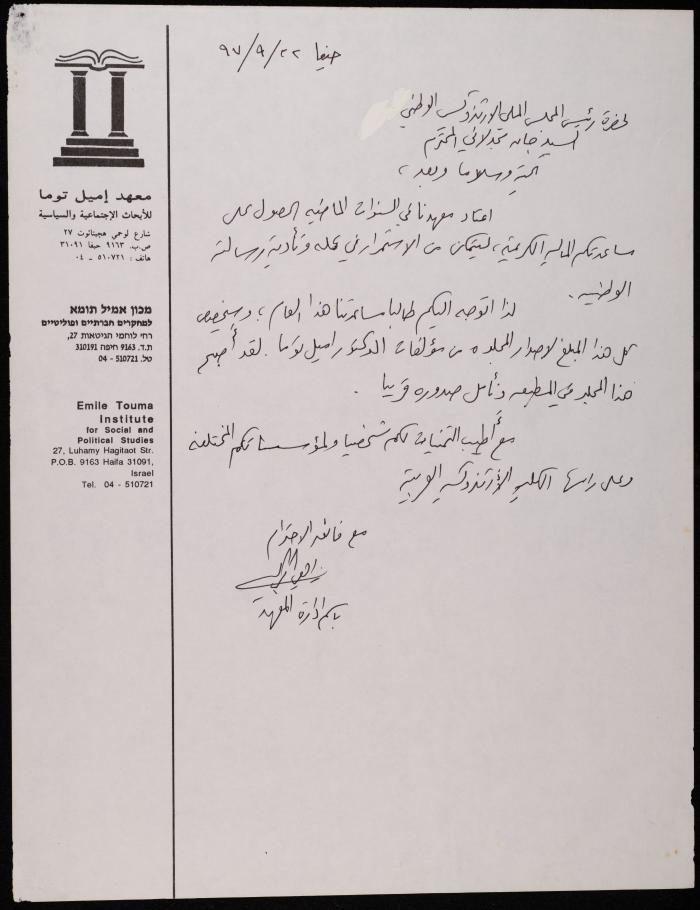 معهد إميل توما
للأبحاث الإجتماعية والسياسية
شارع لوحمي هجيتاؤوت ٢٧
ص.ب. ٩١٦٣ حيفا ٣١٠٩١
هاتف : ٥١٠٧٢١ - ٠٤
מכון אמיל תומא
למחקרים חברתיים ופוליטיים
רחי לוחמי הגיטאות 27,
ת.ד. 9163 חיפה 310191
טל. 510721 - 04
Emile Touma
Institute
for Social and
Political Studies
27, Luhamy Hagitaot Str.
P.O.B. 9163 Haifa 31091,
Israel
Tel. 04 - 510721
حيفا ٢٢/٩/٩٧
لحضرة رئيس المجلس الملي الارثوذكسي الوطني
السيد جاد مجدلاني المحترم
تحية وسلاما وبعد ،
اعتاد معهدنا في السنوات الماضية الحصول على
مساعدتكم المالية الكريمة ، ليتمكن من الاستمرار في عمله وتأدية رسالته
الوطنية .
لذا اتوجه اليكم طالبا مساعدتنا هذا العام ، وسيخصص
كل هذا المبلغ لاصدار المجلد ٥ من مؤلفات الدكتور اميل توما . لقد أصبح
هذا المجلد في المطبعة ونأمل صدوره قريبا .
مع أطيب التمنيات لكم شخصيا ولمؤسساتكم المختلفة
وعلى راسها الكلية الأرثوذكسية العربية
مع فائق الاحترام
باسم ادارة المعهد